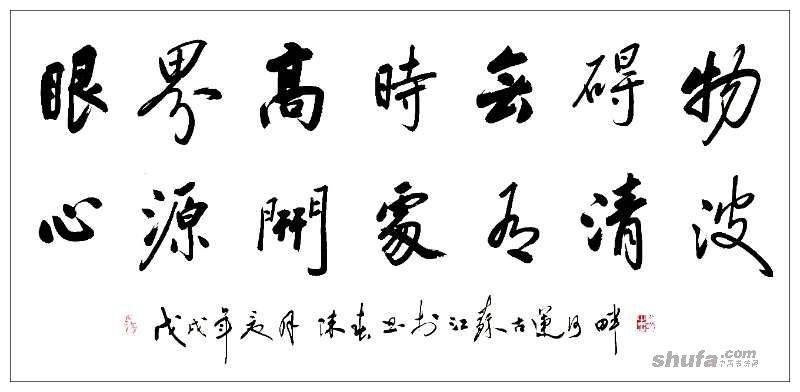 眼界高時無碍物
心源開處有清波
戊戌年夏月 陈春书于江苏古运河畔
shufa.com